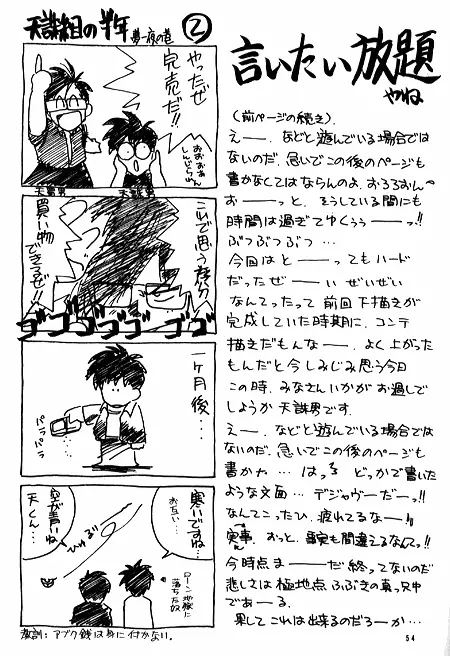 天誅組の半年
夢一夜の巻
②
やったぜ
完売だ!!
おおおお
しんじられん
天誅男
天誅男
これで思う存分
買い物
できるぜ!!
ゴゴゴゴゴゴゴ
一ヶ月後…
パラパラ
寒いですね…
お互い…
空が青いね
天くん…
ひゅるる
ローン地獄に
落ちた奴
教訓：アブク銭は身に付かない。
言いたい放題
やね
(前ページの続き)。
えー―。などと遊んでいる場合では
ないのだ。急いでこの後のページも
書かなくてはならんのよ。おろろおん
おー―っと、もうしている間にも
時間は過ぎてゆくぅぅー―っ!!
ぶつぶつぶつ…
今回はと―ってもハード
だったぜー―ぃ ぜいぜい
なんてったって 前回下描きが
完成していた時期に、コンテ
描きだもんなー―。よく上がった
もんだと今しみじみ思う今日
この時、みなさんいかがお過しで
しょうか 天誅男です。
えー―。などと遊んでいる場合では
ないのだ。急いでこの後のページも
書かね…はっ!? どっかで書いた
ような文面…デジャヴーだーっ!!
なんてこったい、疲れてるなー―!!
実事。おっと、事実も間違えるなんてっ!!
今時点まー―だ終ってないのだ
悲しさは極地点ふぶきの真っ只中
であーる。
果してこれは出来るのだろーか…
54